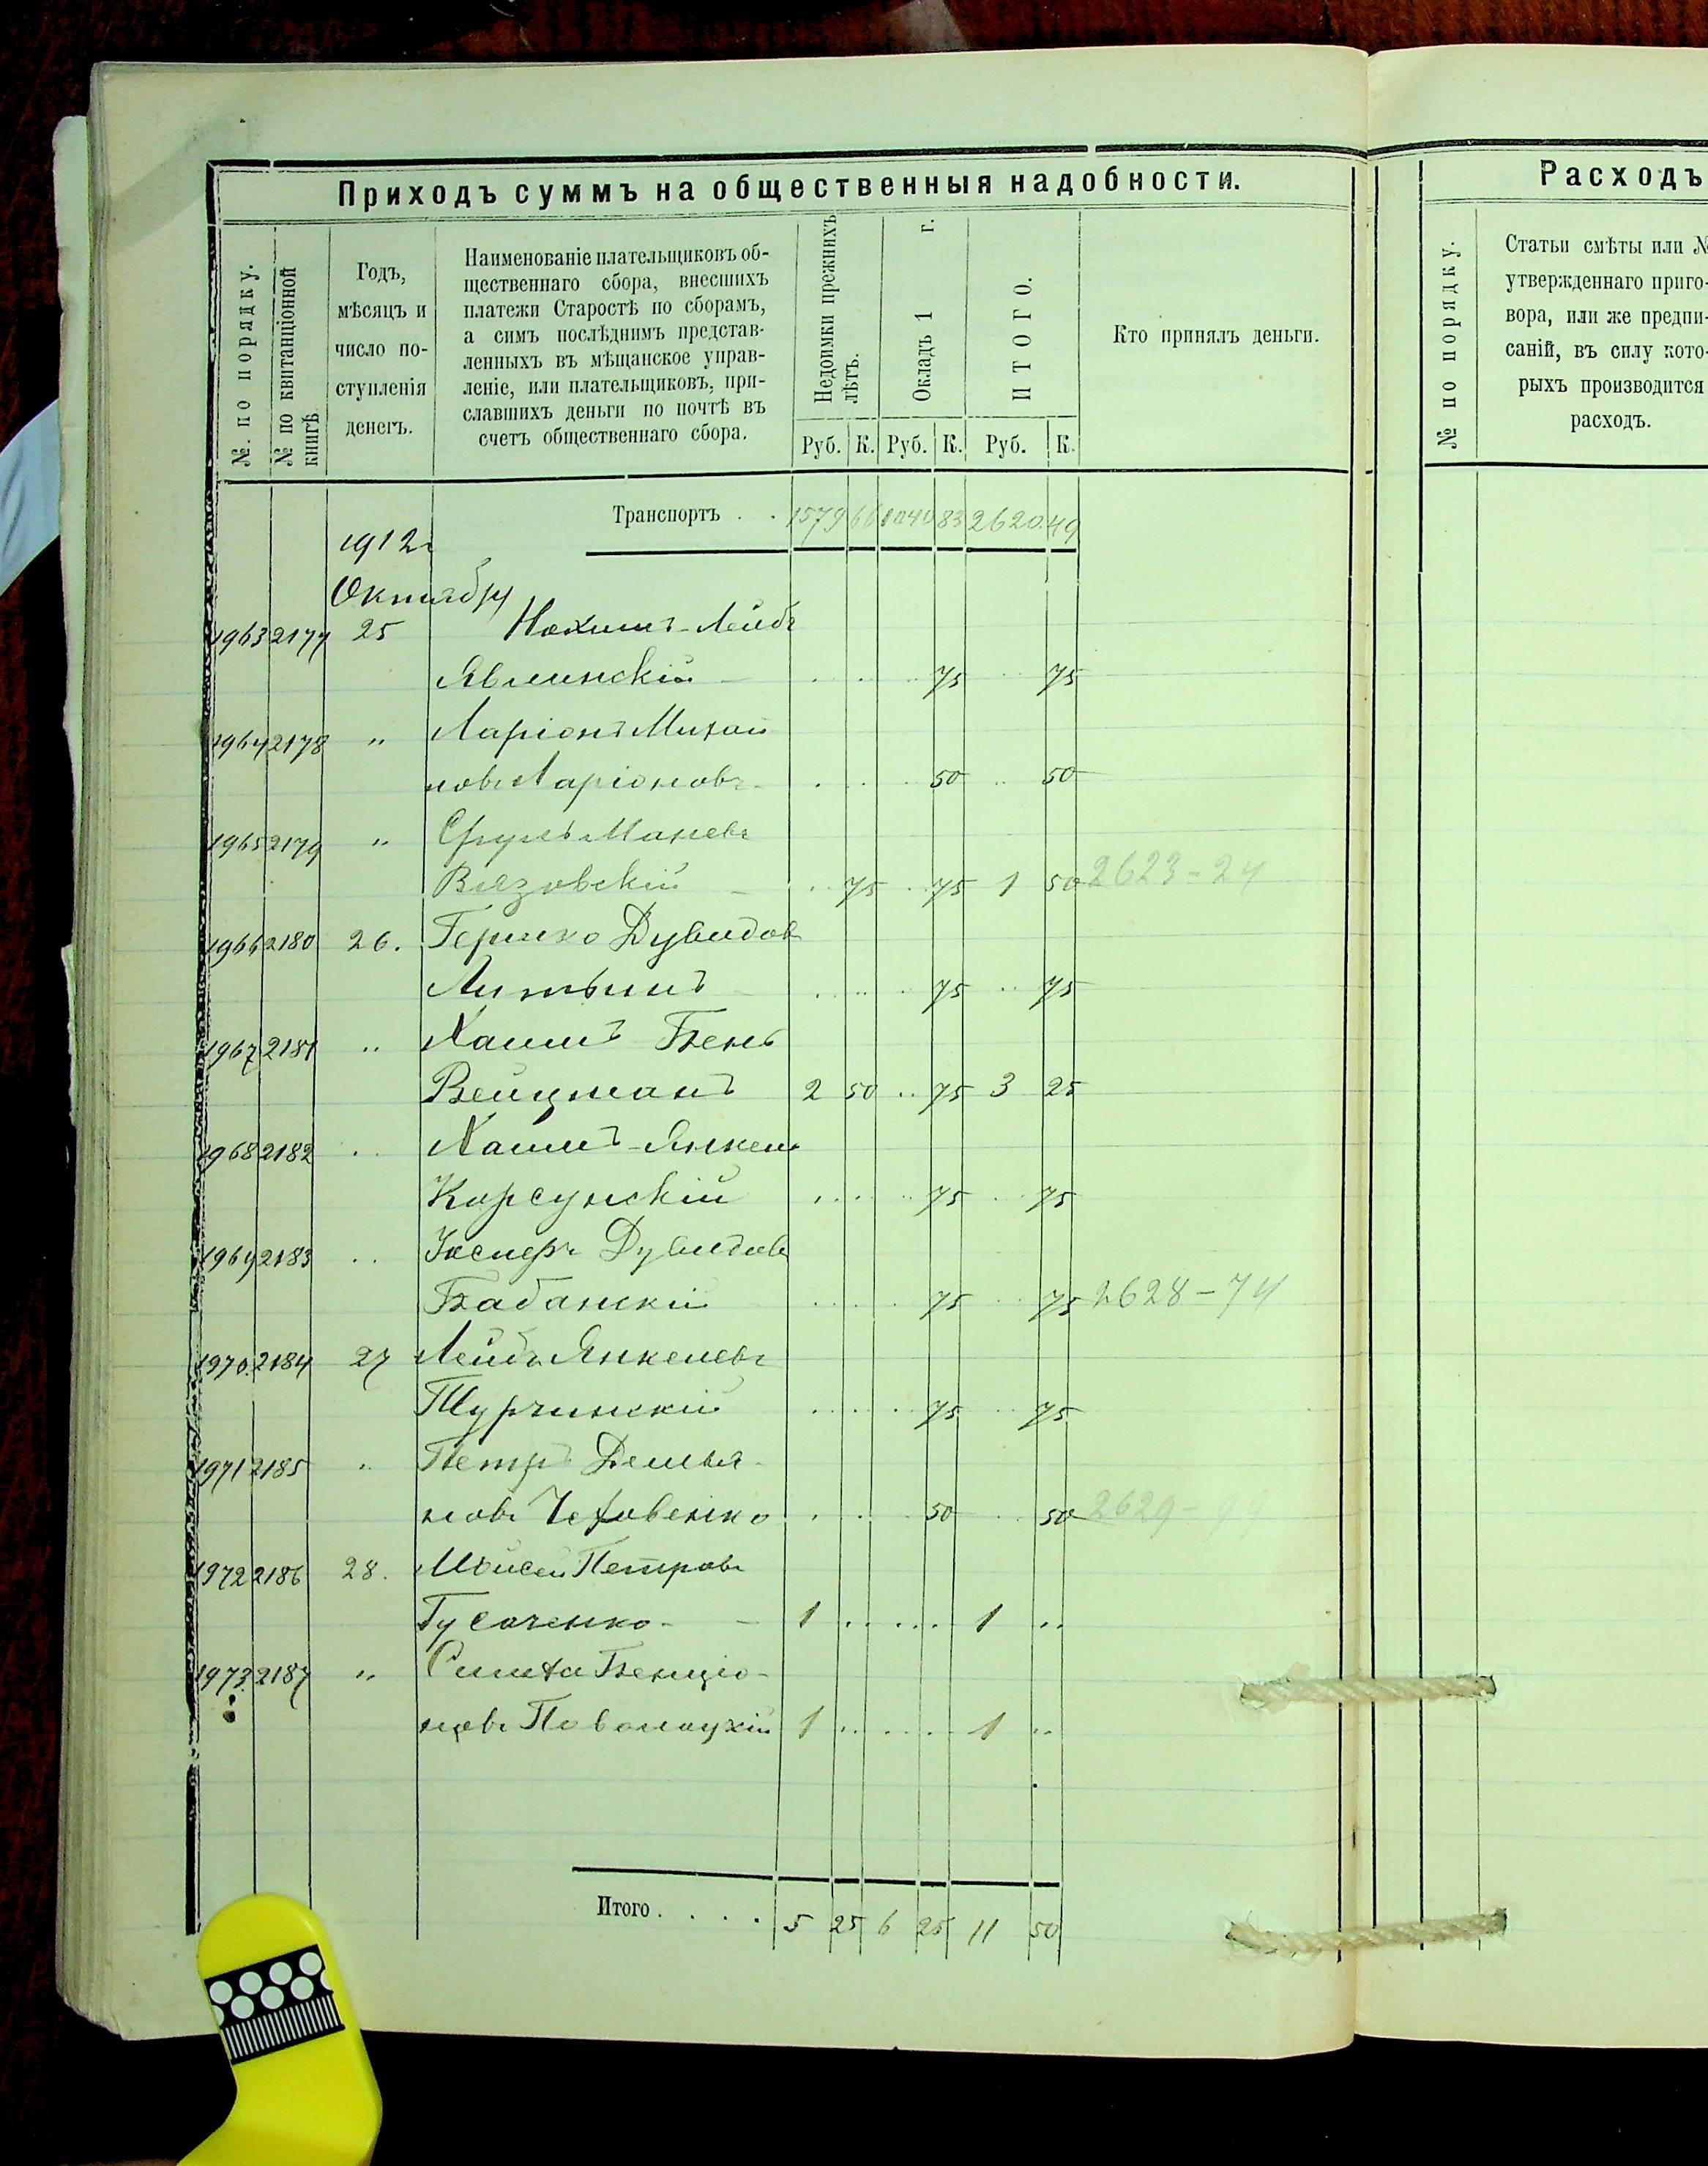 Приходъ суммъ на общественныя надобности.
№. по порядку.
№ по квитанціонной книгѣ
Годъ,
мѣсяцъ и
число по-
ступленія
денегъ.
Наименованіе плательщиковъ об-
щественнаго сбора, внесшихъ
платежи Старостѣ по сборамъ,
а симъ послѣднимъ представ-
ленныхъ въ мѣщанское управ-
леніе, или плательщиковъ, при-
славшихъ деньги по почтѣ въ
счетъ общественнаго сбора.
Недоимки прежнихъ лѣтъ.
Окладъ 1 г.
ИТОГО.
Кто принялъ деньги.
Руб. К. Руб. К. Руб. К.
Транспортъ . . 1579 66 1040 83 2620 49
1912 г
Октября
1963 2177 25 Нахимъ-Лейбъ
Явлинскій - 75 75
1964 2178 " Ларіонъ Михай
ловъ Ларіоновъ 50 50
1965 2179 " Сруль Маневъ
Вязовскій - 75 75 1 50 2623-24
1966 2180 26. Гершко Дувидов
Литвинъ 75 75
1967 2181 " Хаимъ Бень
Вейцманъ 2 50 75 3 25
1968 2182 " Хаимъ-Янкель
Корсунскій 75 75
1969 2183 " Дувидовъ
Бабанскій 75 75 2628-74
1970 2184 27 Лейба Янкелевъ
Турчинскій 75 75
1971 2185 " Петръ Демья-
новъ 50 50 2629-99
1972 2186 28. Мойсей Петровъ
Гусаченко - 1 1
1973 2187 " Симха Бенціо-
новъ Поволоцкій 1 1
Итого . . . . 5 25 6 25 11 50
Расходъ
№ по порядку.
Статьи смѣты или №
утвержденнаго приго-
вора, или же предпи-
саній, въ силу кото-
рыхъ производится
расходъ.